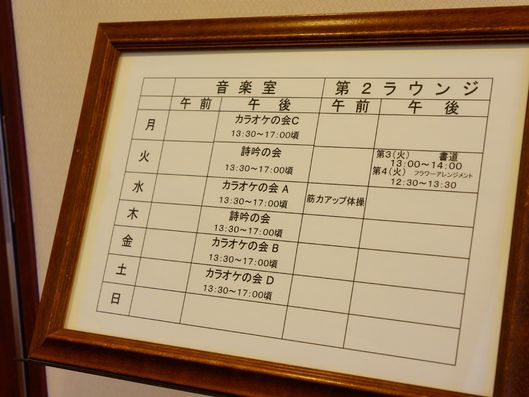 音楽室 第２ラウンジ
午前 午後 午前 午後
月 カラオケの会C
13:30～17:00頃
火 詩吟の会 第3(火) 書道
13:30～17:00頃 13:00～14:00
第4(火) フラワーアレンジメント
12:30～13:30
水 カラオケの会 A 筋力アップ体操
13:30～17:00頃
木 詩吟の会
13:30～17:00頃
金 カラオケの会 B
13:30～17:00頃
土 カラオケの会 D
13:30～17:00頃
日